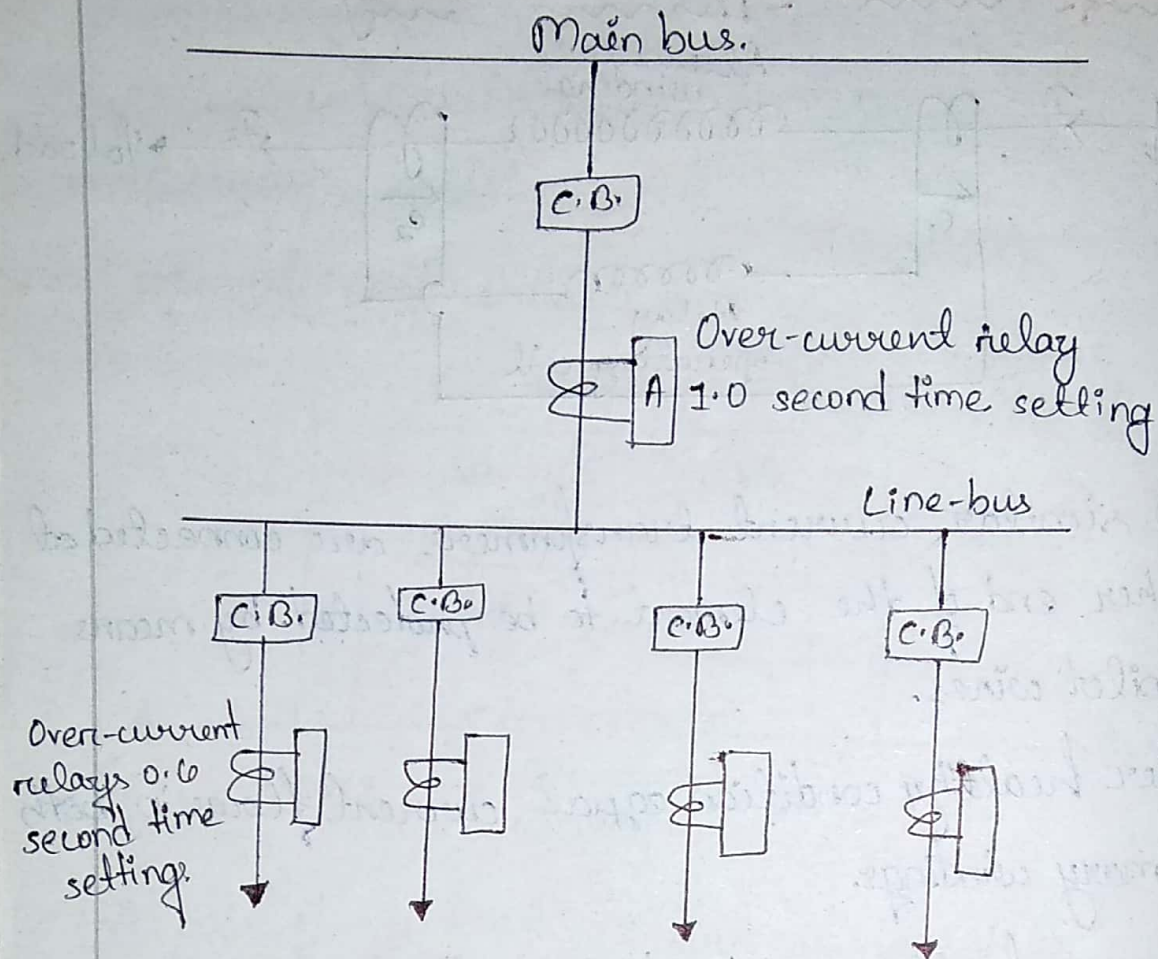 Main bus.
C.B.
Over-current relay
A 1.0 second time setting
Line-bus
C.B.
C.B.
C.B.
C.B.
Over-current
relays 0.6
second time
setting.